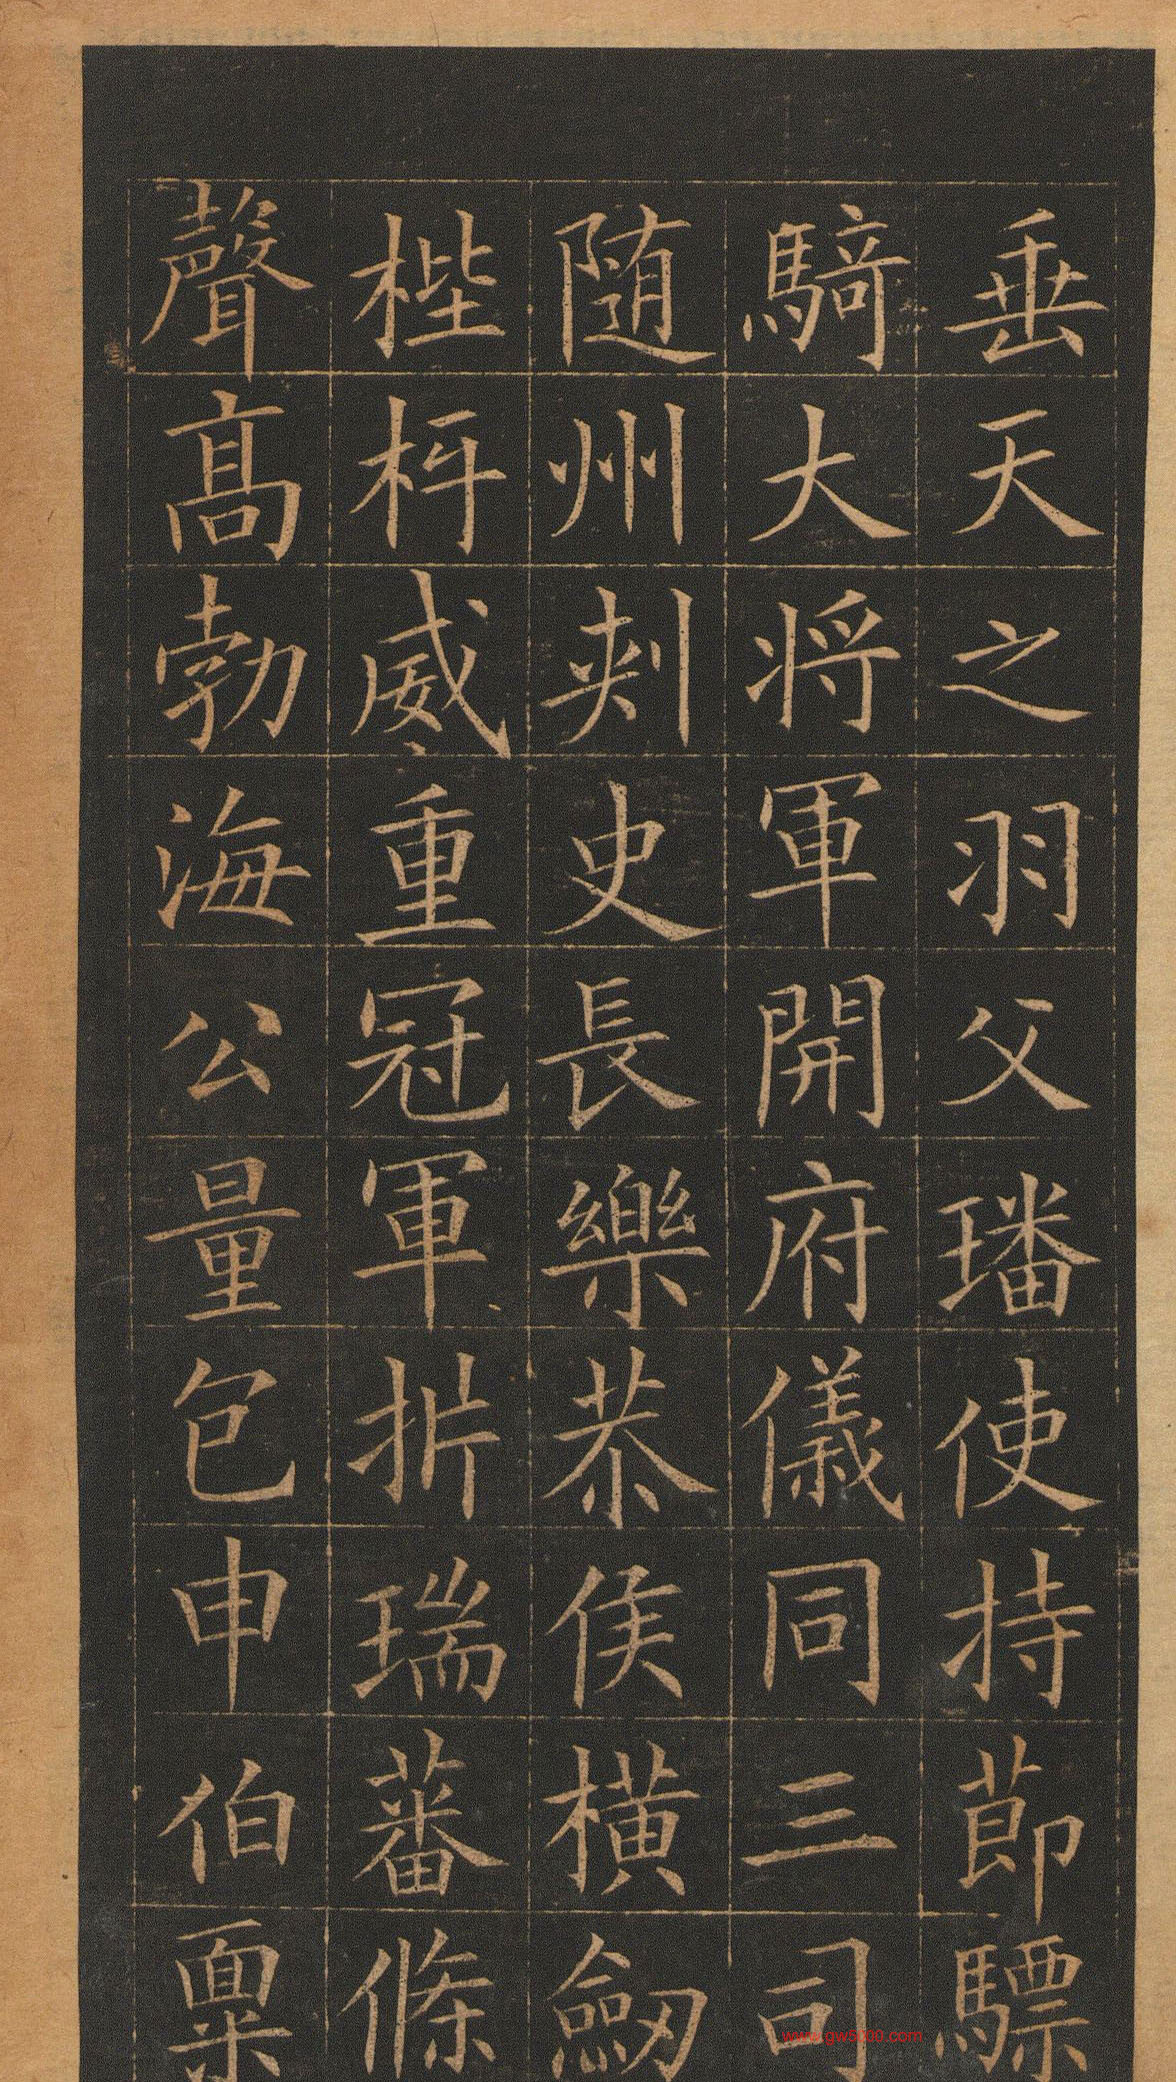 垂天之羽父璠使持莭驃
騎大将軍開府儀同三司
随州刾史長樂恭侯橫劔
梐枑威重冠軍扸瑞蕃條
聲髙勃海公量包申伯稟
www.gw5000.com